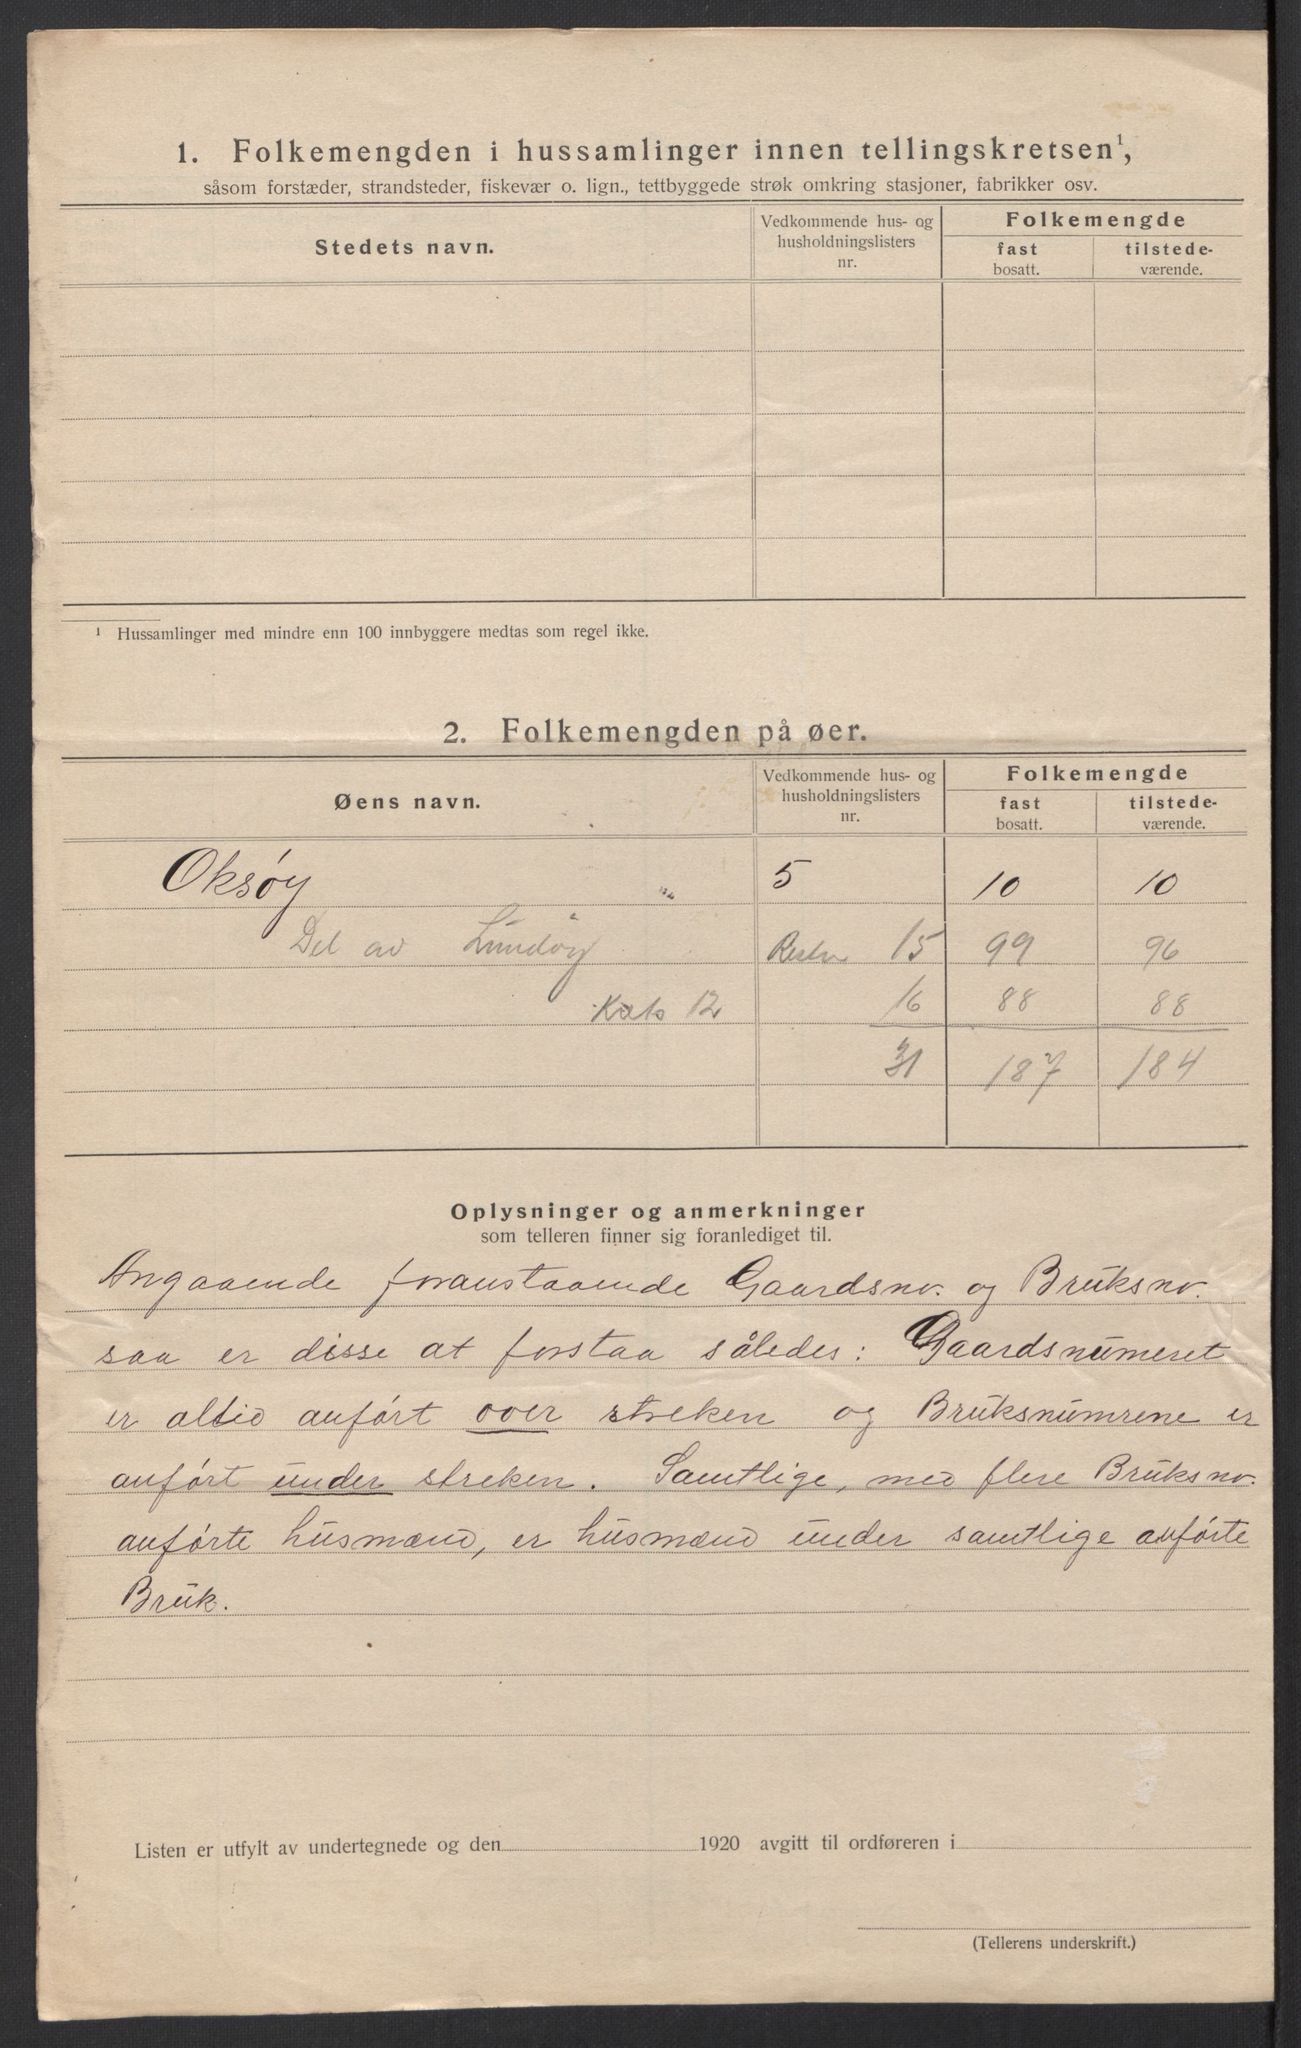 1. Folkemengden i hussamlinger innen tellingskretsen¹,
såsom forstæder, strandsteder, fiskevær o. lign., tettbyggede strøk omkring stasjoner, fabrikker osv.
Stedets navn. Vedkommende hus- og husholdningslisters nr. Folkemengde fast bosatt. tilstede-værende.
¹ Hussamlinger med mindre enn 100 innbyggere medtas som regel ikke.
2. Folkemengden på øer.
Øens navn. Vedkommende hus- og husholdningslisters nr. Folkemengde fast bosatt. tilstede-værende.
Oksøy " 5 10 10
Del av Lundøy 15 99 96
12 16 88 88
31 187 184
Oplysninger og anmerkninger
som telleren finner sig foranlediget til.
Angaaende foranstaaende Gaardsnr. og Bruksnr.
saa er disse at forstaa således: Gaardsnumeret
er altid anført over streken og Bruksnumrene er
anført under streken. Samtlige, med flere Bruksnr.
anførte husmænd, er husmænd under samtlige anførte
Bruk.
Listen er utfylt av undertegnede og den 1920 avgitt til ordføreren i
(Tellerens underskrift.)